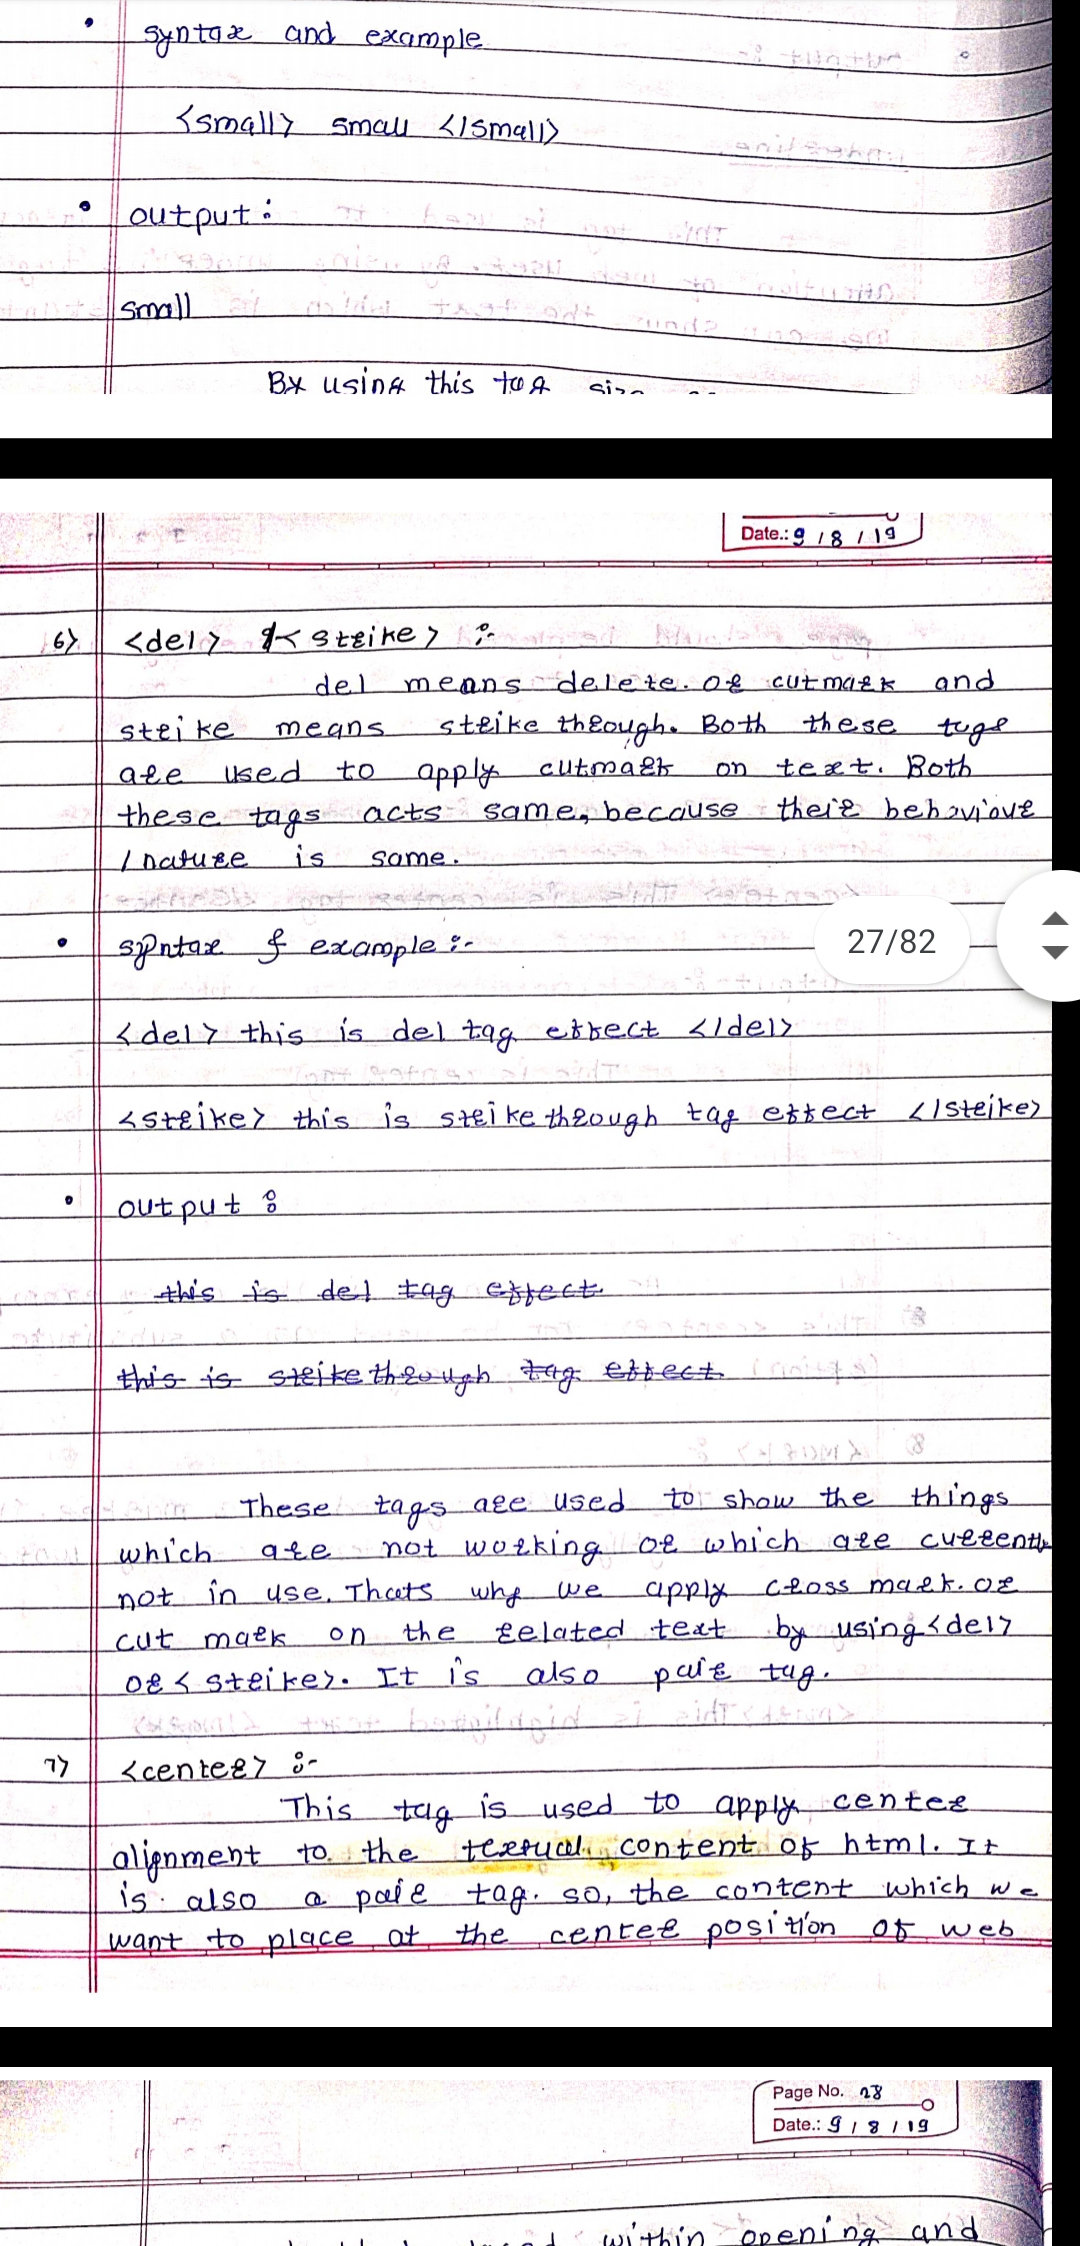 syntax and example
<small> small </small>
output :
small
By using this tag size
Date.: 9 / 8 / 19
6) <del> & <strike> :-
del means delete. or cutmark and
strike means strike through. Both these tags
are used to apply cutmark on text. Both
these tags acts same, because their behaviour
/ nature is same.
syntax & example :-
27/82
<del> this is del tag effect </del>
<strike> this is strike through tag effect </strike>
output :
this is del tag effect.
this is strike through tag effect.
These tags are used to show the things
which are not working or which are currently
not in use. Thats why we apply cross mark. or
cut mark on the related text by using <del>
or <strike>. It is also pair tag.
7) <center> :-
This tag is used to apply center
alignment to the textual content of html. It
is also a pair tag. so, the content which we
want to place at the center position of web
Page No. 28
Date.: 9 / 8 / 19
within opening and